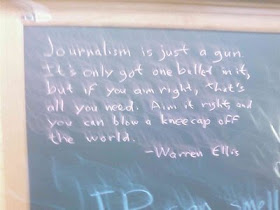 Journalism is just a gun.
It's only got one bullet in it,
but if you aim right, that's
all you need. Aim it right, and
you can blow a kneecap off
the world.
-Warren Ellis